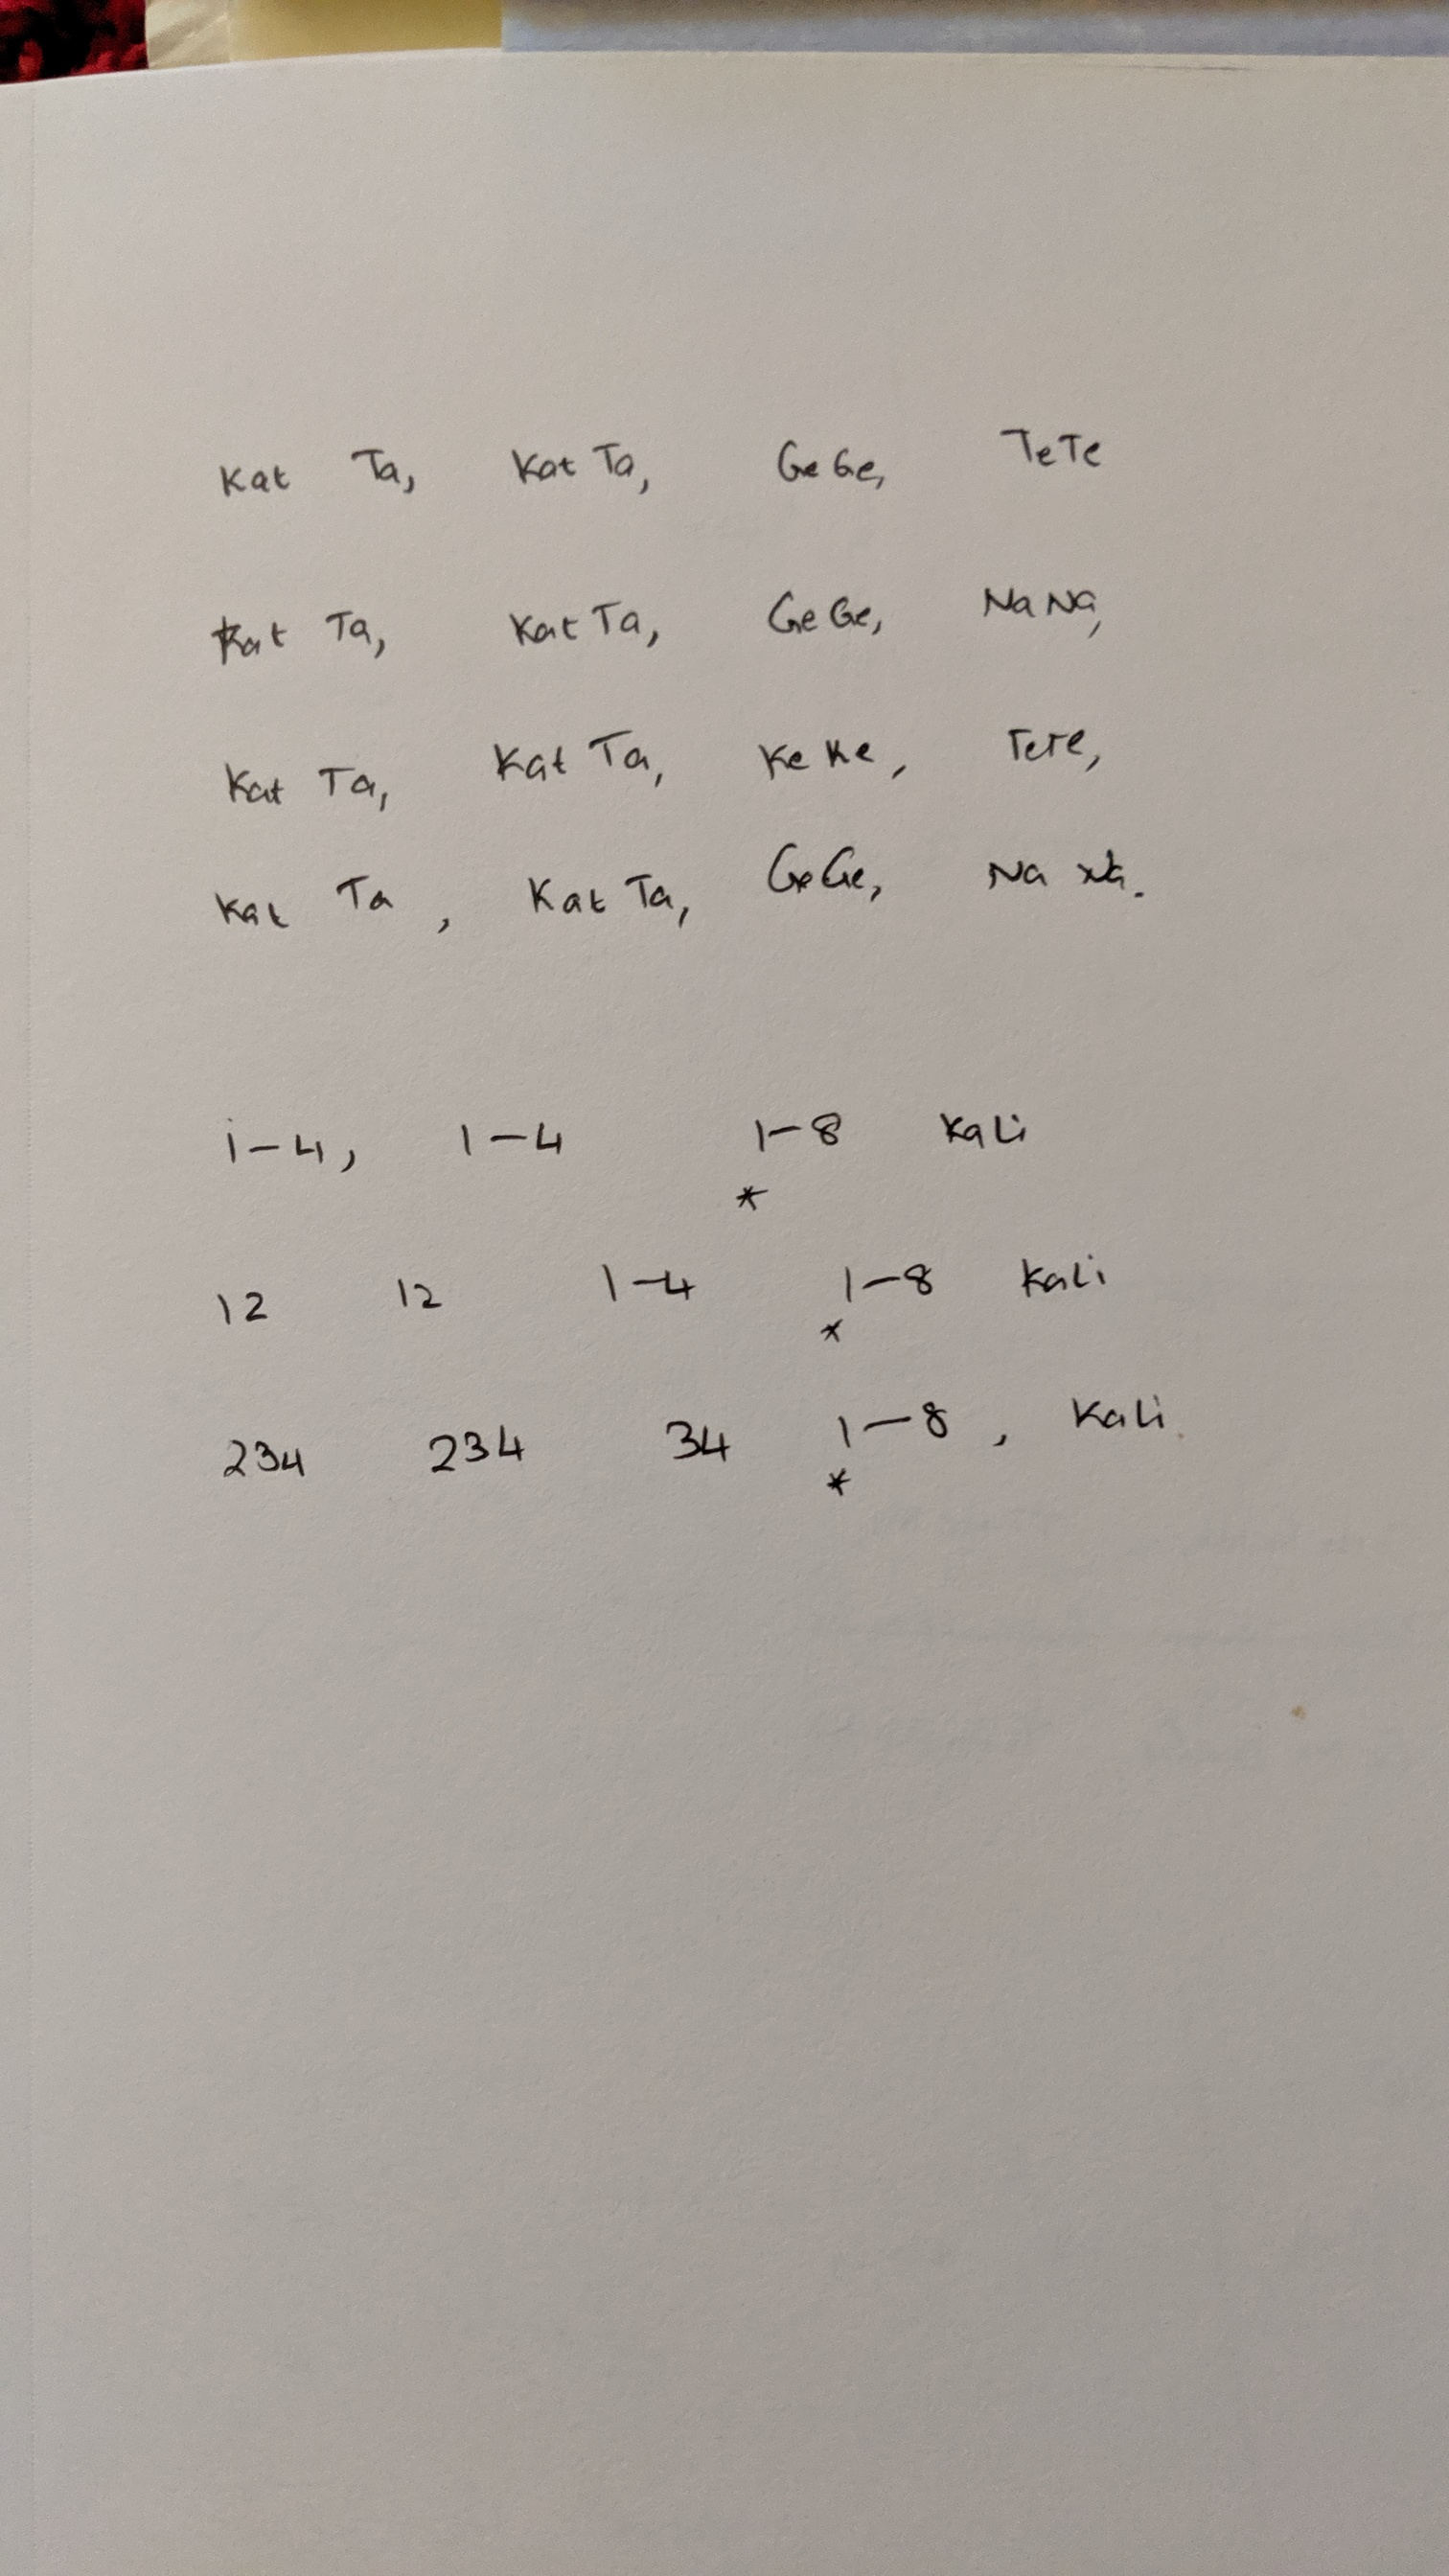 Kat Ta, Kat Ta, GeGe, TeTe
Kat Ta, Kat Ta, GeGe, NaNa,
Kat Ta, Kat Ta, KeKe, TeTe,
Kat Ta, Kat Ta, GeGe, Na Na.
1-4, 1-4 1-8 Kali
*
12 12 1-4 1-8 Kali
*
234 234 34 1-8, Kali
*